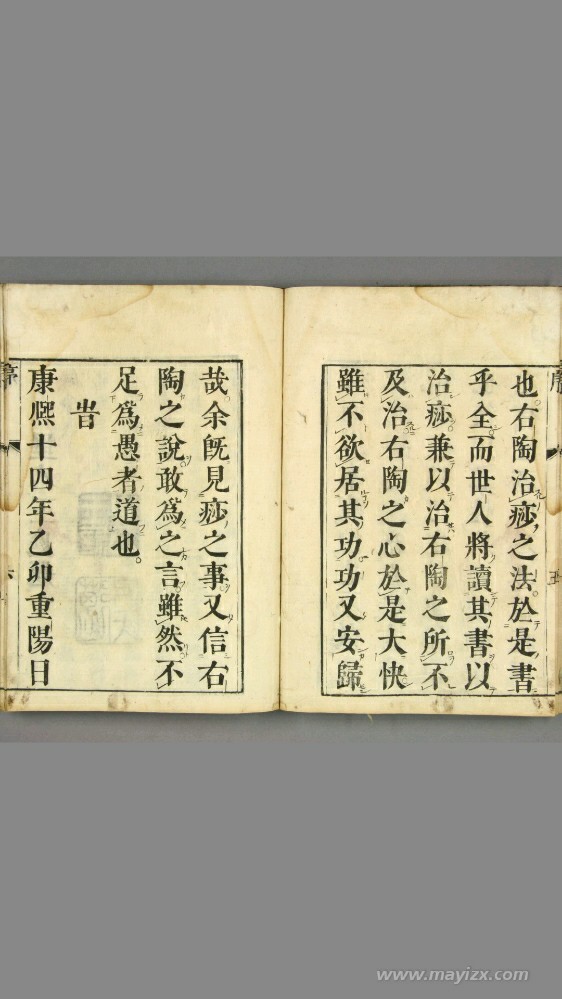 也右陶治痧之法於是書
乎全而世人將讀其書以
治痧兼以治右陶之所不
及治右陶之心於是大快
雖不欲居其功功又安歸
哉余旣見痧之事又信右
陶之說敢爲之言雖然不
足爲愚者道也。
旹
康熈十四年乙卯重陽日
序
六
www.mayizx.com